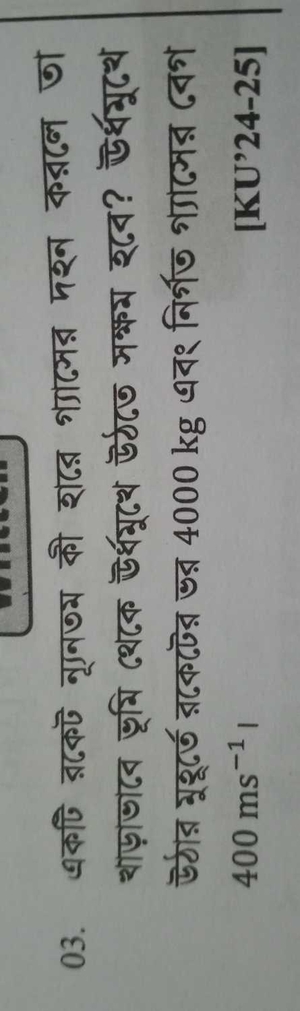 03. একটি রকেট ন্যূনতম কী হারে গ্যাসের দহন করলে তা
খাড়াভাবে ভূমি থেকে ঊর্ধ্বমুখে উঠতে সক্ষম হবে? ঊর্ধ্বমুখে
উঠার মুহূর্তে রকেটের ভর 4000 kg এবং নির্গত গ্যাসের বেগ
400 ms⁻¹। [KU'24-25]